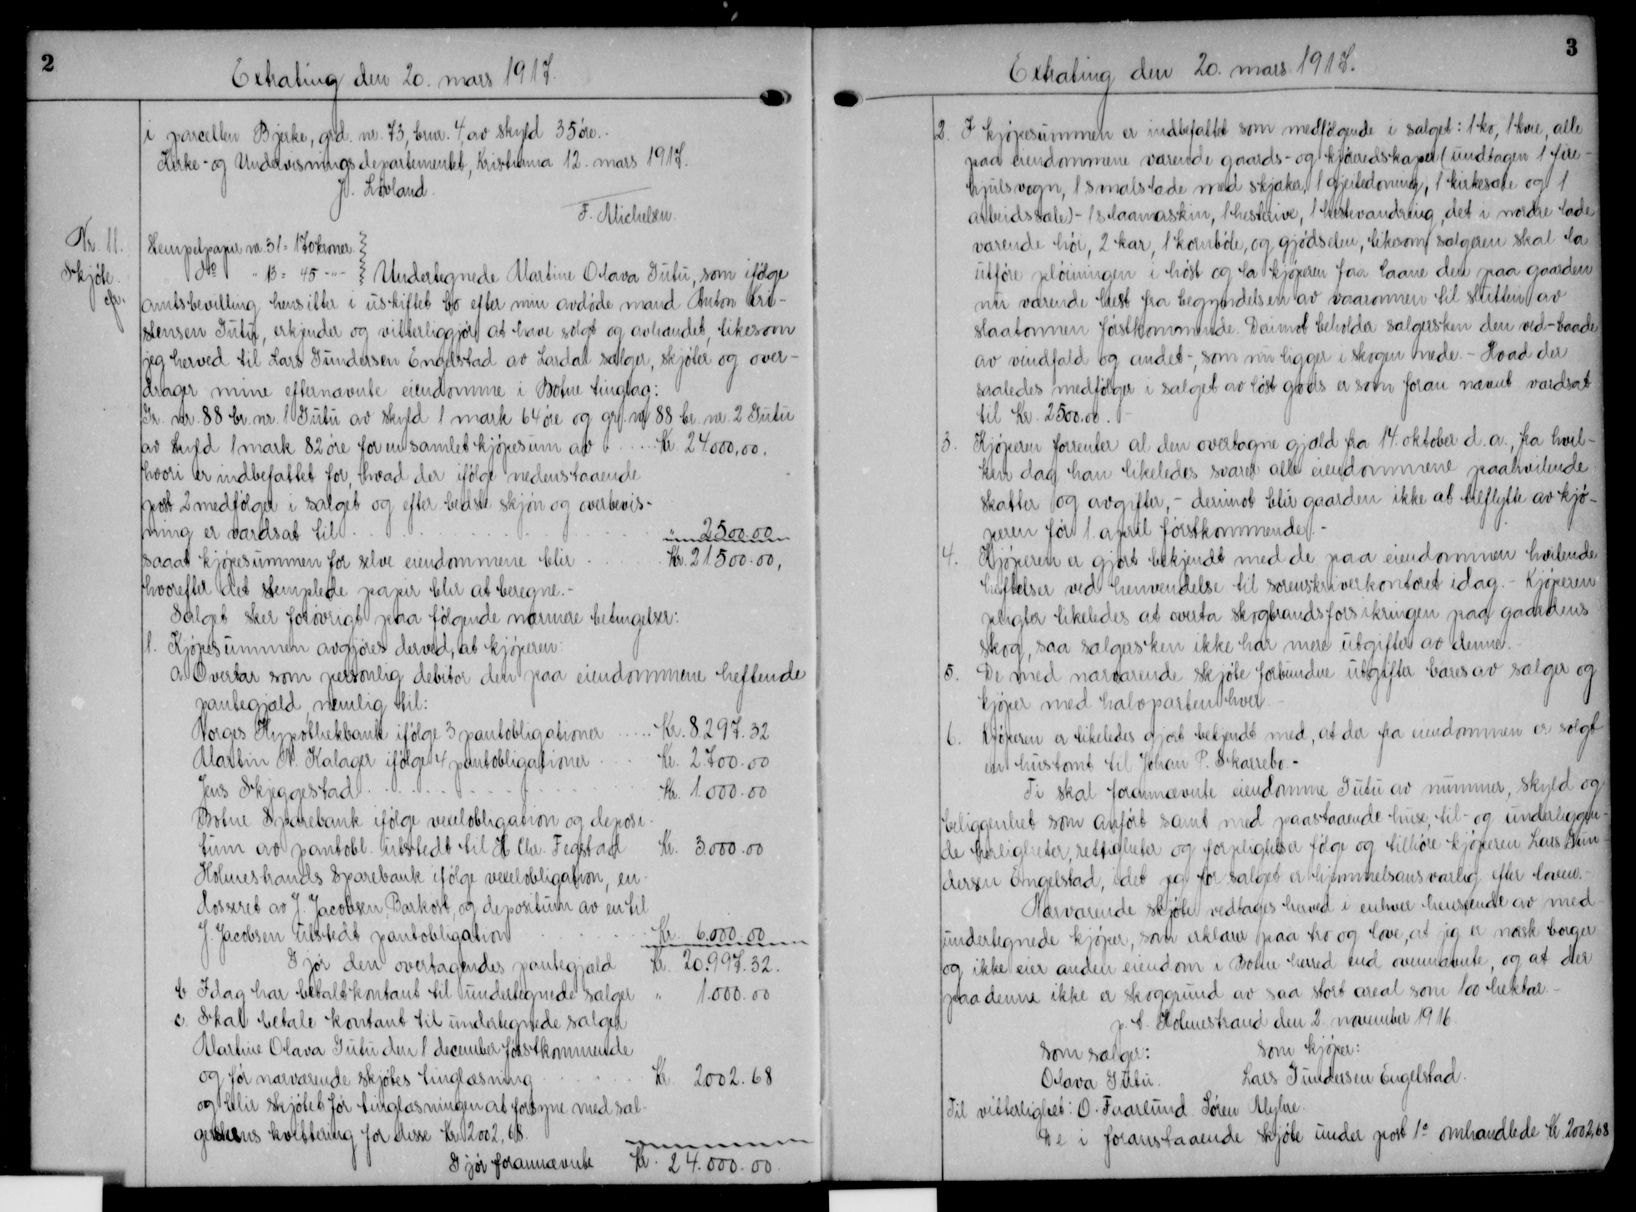 2
Extrating den 20. mars 1917.
i parcellen Bjerke, grd. nr. 73, brnr. 4, av skyld 35 øre.-
Kirke- og Undervisningsdepartementet, Kristiania 12. mars 1917.
J. Løvland.
F. Michelsen.
Nr. 11.
Skjøte.
Stempelpapir nr. 31 = 170 kroner
do " 13 = 45 -"-
Undertegnede Martine Olava Gutu, som ifølge
amtsbevilling hensitter i uskiftet bo efter min avdøde mand Anton Kri-
stensen Gutu, erkjender og vitterliggjør at have solgt og avhændet, likesom
jeg herved til Lars Gundersen Engelstad av Lardal sælger, skjøter og over-
drager mine efternævnte eiendomme i Botne tinglag:
Gr. nr. 88 br. nr. 1 Gutu av skyld 1 mark 64 øre og gr. nr. 88 br. nr. 2 Gutu
av skyld 1 mark 82 øre for en samlet kjøpesum av .... Kr. 24.000,00.
hvori er indbefattet for, hvad der ifølge nedenstaaende
post 2 medfølger i salget og efter bedste skjøn og overbevis-
ning er værdsat til ........ " 2500.00
saaat kjøpesummen for selve eiendommene blir ..... Kr. 21500.00,
hvorefter det stemplede papir blir at beregne.-
Salget sker forøvrigt paa følgende nærmere betingelser:
1. Kjøpesummen avgjøres derved, at kjøperen:
a. Overtar som personlig debitor den paa eiendommene heftende
pantegjæld, nemlig til:
Norges Hypothekbank ifølge 3 pantobligationer ..... Kr. 8.297.32
Martin N. Kalager ifølge 4 pantobligationer ... Kr. 2.700.00
Jens Skjeggestad ........ Kr. 1.000.00
Botne Sparebank ifølge vexelobligation og deposi-
tum av pantobl. utstedt til H. Chr. Fegstad Kr. 3.000.00
Holmestrands Sparebank ifølge vexelobligation, en-
dosseret av J. Jacobsen, Barkost, og depositum av en til
J. Jacobsen utstedt pantobligation ...... Kr. 6.000.00
Gjør den overtagendes pantegjæld Kr. 20.997.32.
b. Idag har betalt kontant til undertegnede sælger " 1.000.00
c. Skal betale kontant til undertegnede sælger
Martine Olava Gutu den 1 december førstkommende
og før nærværende skjøtes tinglæsning ..... Kr. 2002.68
og blir skjøtet før tinglæsningen at forsyne med sæl-
gerskens kvittering for disse Kr. 2002,68.
Gjør forannævnte Kr. 24.000.00.
3
Extrating den 20. mars 1917.
2. I kjøpesummen er indbefattet som medfølgende i salget: 1 ko, 1 kvie, alle
paa eiendommene værende gaards- og kjøreredskaper (undtagen 1 fire-
hjulsvogn, 1 smalslæde med skjæker, 1 gjeitedoning, 1 kirkesæle og 1
arbeidssæle) - 1 slaamaskin, 1 hestrive, 1 hestevandring, det i nordre lade
værende høi, 2 kar, 1 kornbøle, og gjødselen, likesom sælgeren skal la
utføre pløiningen i høst og la kjøperen faa laane den paa gaarden
nu værende hest fra begyndelsen av vaaronnen til slutten av
slaatonnen førstkommende. Derimot beholder sælgersken den ved - baade
av vindfald og andet -, som nu ligger i skogen nede. - Hvad der
saaledes medfølger i salget av løst gods er som foran nævnt værdsat
til Kr. 2500.00. -
3. Kjøperen forrenter al den overtagne gjæld fra 14. oktober d. a., fra hvil-
ken dag han likeledes svarer alle eiendommene paahvilende
skatter og avgifter, - derimot blir gaarden ikke at tilflytte av kjø-
peren før 1. april førstkommende. -
4. Kjøperen er gjort bekjendt med de paa eiendommen hvilende
heftelser ved henvendelse til sorenskriverkontoret idag. - Kjøperen
pligter likeledes at overta skogbrandsforsikringen paa gaardens
skog, saa sælgersken ikke har mere utgifter av denne. -
5. De med nærværende skjøte forbundne utgifter bæres av sælger og
kjøper med halvparten hver. -
6. Kjøperen er likeledes gjort bekjendt med, at der fra eiendommen er solgt
en hustomt til Johan P. Skarrebo. -
Ti skal forannævnte eiendomme Gutu av nummer, skyld og
beliggenhet som anført samt med paastaaende huse, til- og underliggen-
de herligheter, rettigheter og forpligtelser følge og tilhøre kjøperen Lars Gun-
dersen Engelstad, idet jeg for salget er hjemmelsansvarlig efter loven. -
Nærværende skjøte vedtages herved i enhver henseende av med-
undertegnede kjøper, som erklærer paa tro og love, at jeg er norsk borger
og ikke eier anden eiendom i Botne herred end ovennævnte, og at der
paa denne ikke er skoggrund av saa stort areal som 100 hektar. -
p. t. Holmestrand den 2. november 1916.
Som sælger: Som kjøper:
Olava Gutu. Lars Gundersen Engelstad.
Til vitterlighet: O. Fuarlund. Søren Myhre.
De i foranstaaende skjøte under post 1c omhandlede Kr. 2002,68